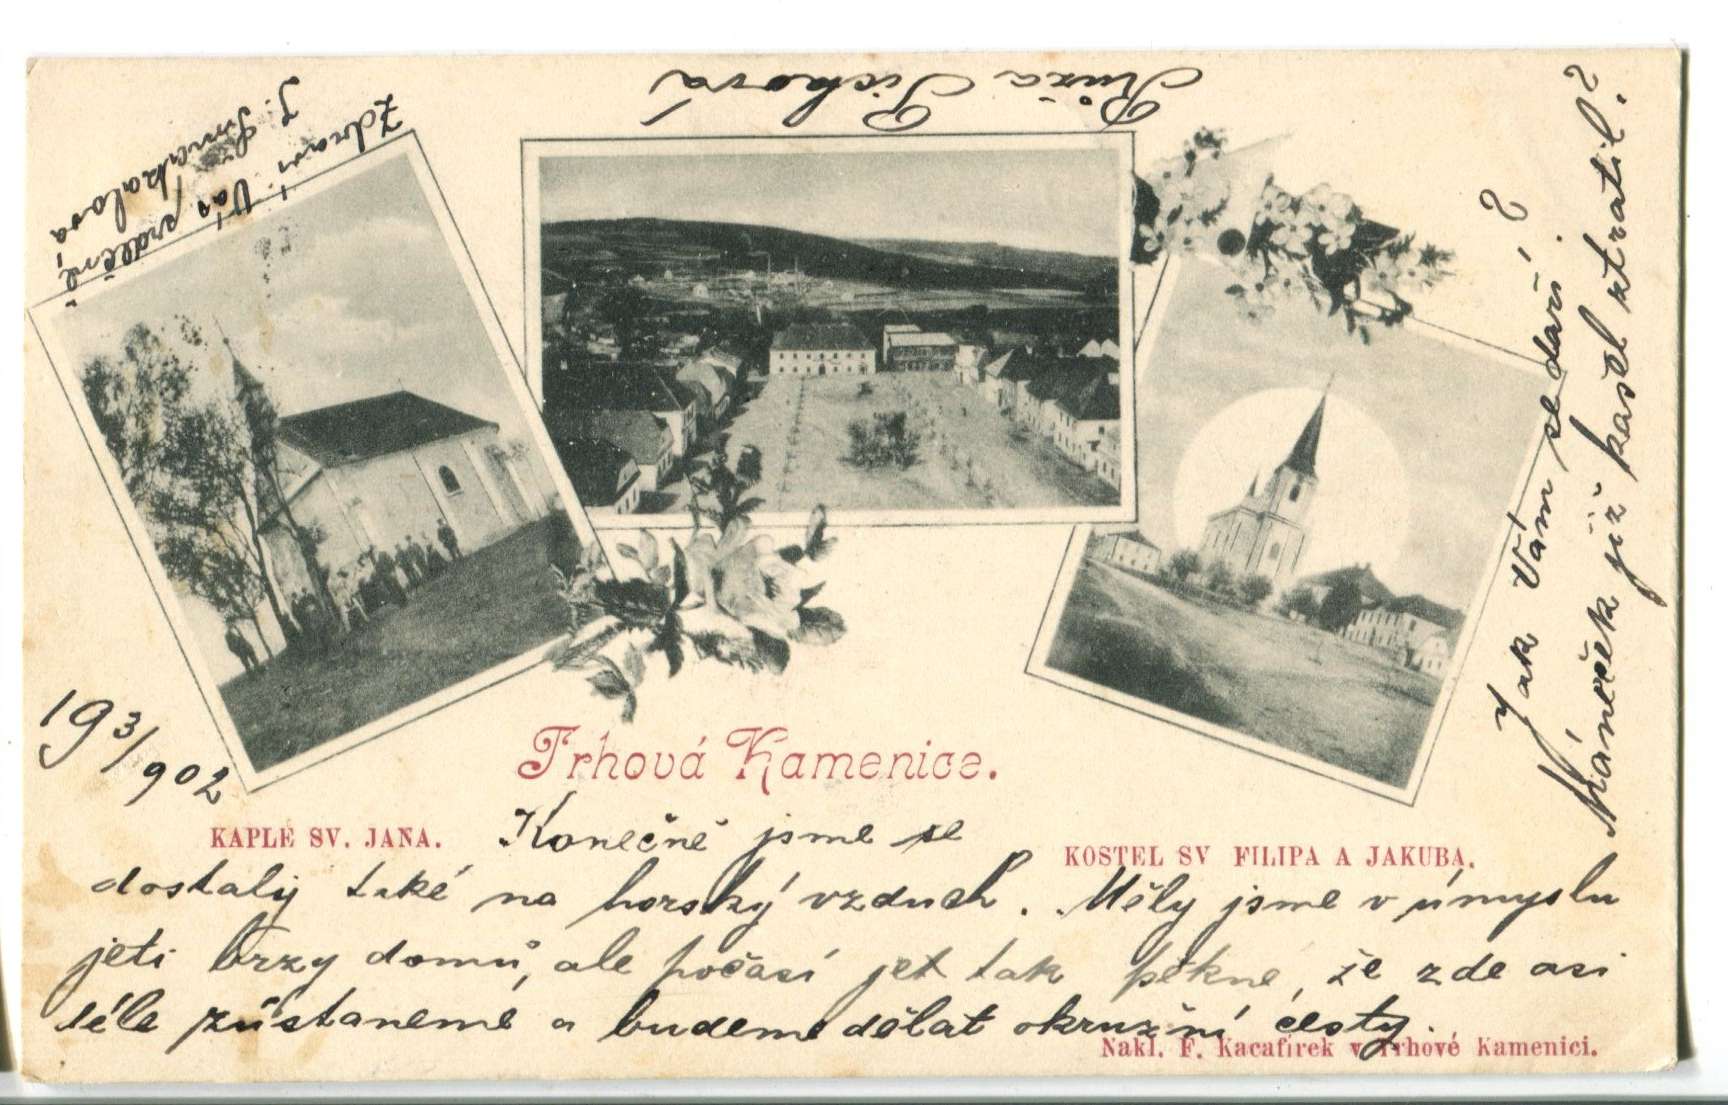 Růža Tichová
Zdraví Vás srdečně
J. Smekalova
19 3/902
Trhová Kamenice.
KAPLE SV. JANA.
KOSTEL SV FILIPA A JAKUBA.
Konečně jsme se
dostaly také na horský vzduch. Měly jsme v úmyslu
jeti brzy domů, ale počasí jest tak pěkné, že zde asi
déle zůstaneme a budeme dělat okružní cesty.
Jak Vám se daří?
Máneček již kašel ztratil?
Nakl. F. Kacafírek v Trhové Kamenici.